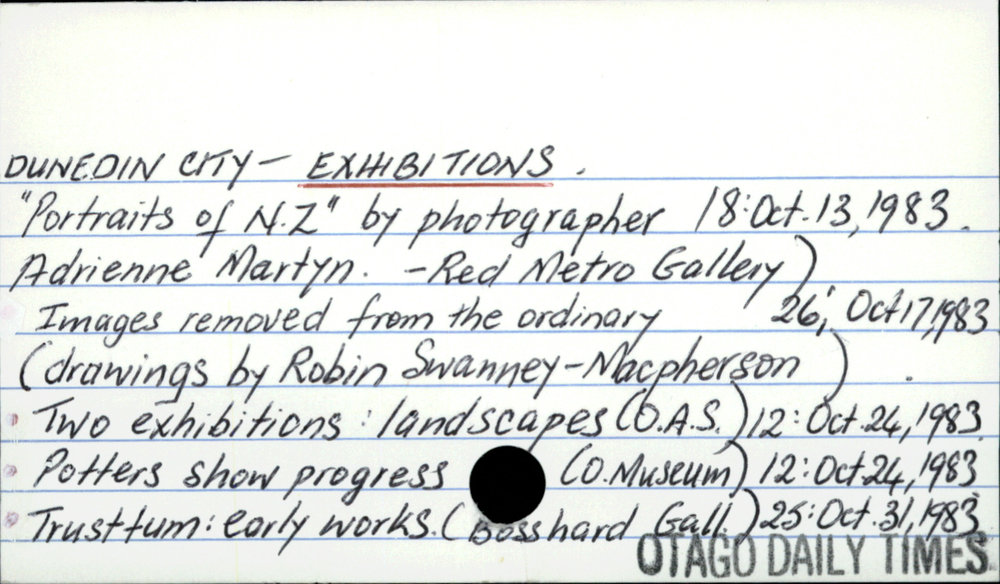 DUNEDIN CITY - EXHIBITIONS.
"Portraits of N.Z" by photographer 18: Oct. 13, 1983.
Adrienne Martyn. - Red Metro Gallery)
Images removed from the ordinary 26; Oct 17, 1983
(drawings by Robin Swanney-Macpherson).
Two exhibitions: landscapes (O.A.S.) 12: Oct. 24, 1983
Potters show progress (O. Museum) 12: Oct. 24, 1983
Trusttum: early works. (Bosshard Gall.) 25: Oct. 31, 1983
OTAGO DAILY TIMES